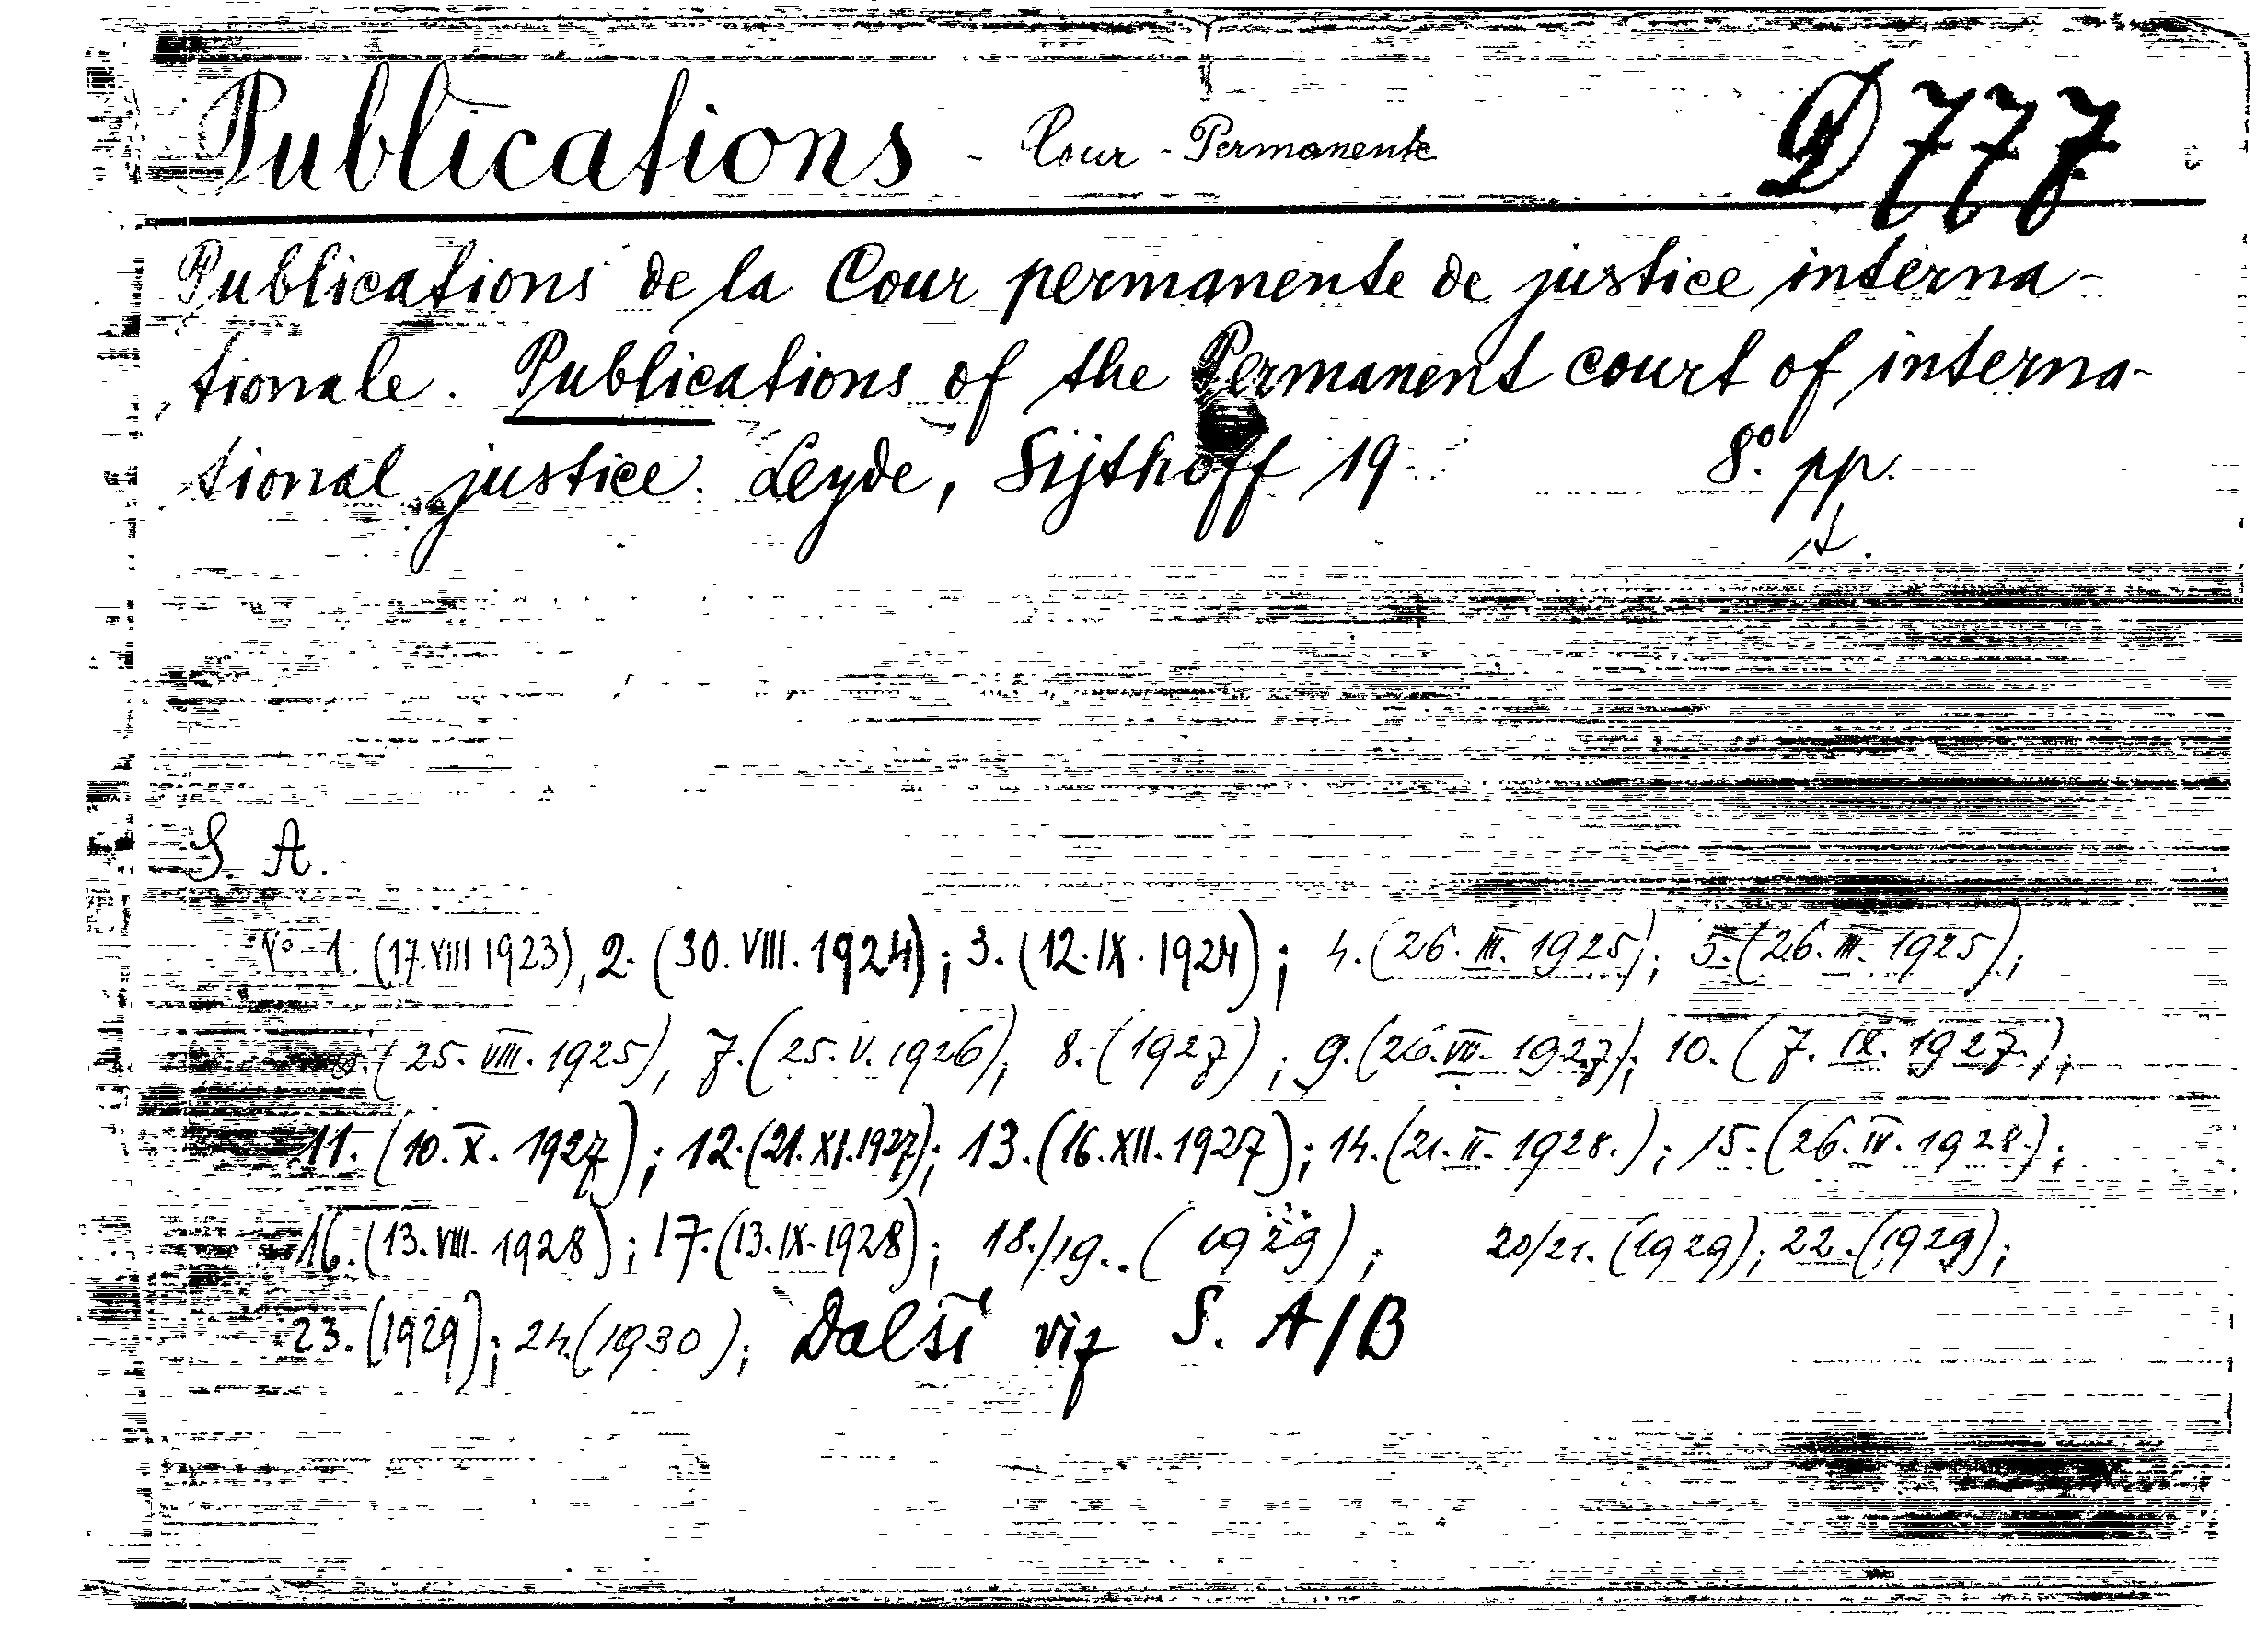 Publications - Cour - Permanente D 777
Publications de la Cour permanente de justice interna-
tionale. Publications of the Permanent court of interna-
tional justice. Leyde, Sijthoff 19 8º. pp.
S. A.
Nº 1. (17.VIII 1923), 2. (30. VIII. 1924); 3. (12. IX. 1924); 4. (26. III. 1925); 5. (26. III. 1925);
(25. VIII. 1925), 7. (25. V. 1926); 8. (1927); 9. (26. VII. 1927); 10. (7. IX. 1927.);
11. (10. X. 1927); 12. (21. XI. 1927); 13. (16. XII. 1927); 14. (21. II. 1928.); 15. (26. IV. 1928.);
16. (13. VIII. 1928); 17. (13. IX. 1928); 18./19.. (1929); 20/21. (1929); 22. (1929);
23. (1929); 24. (1930); Další viz S. A/B